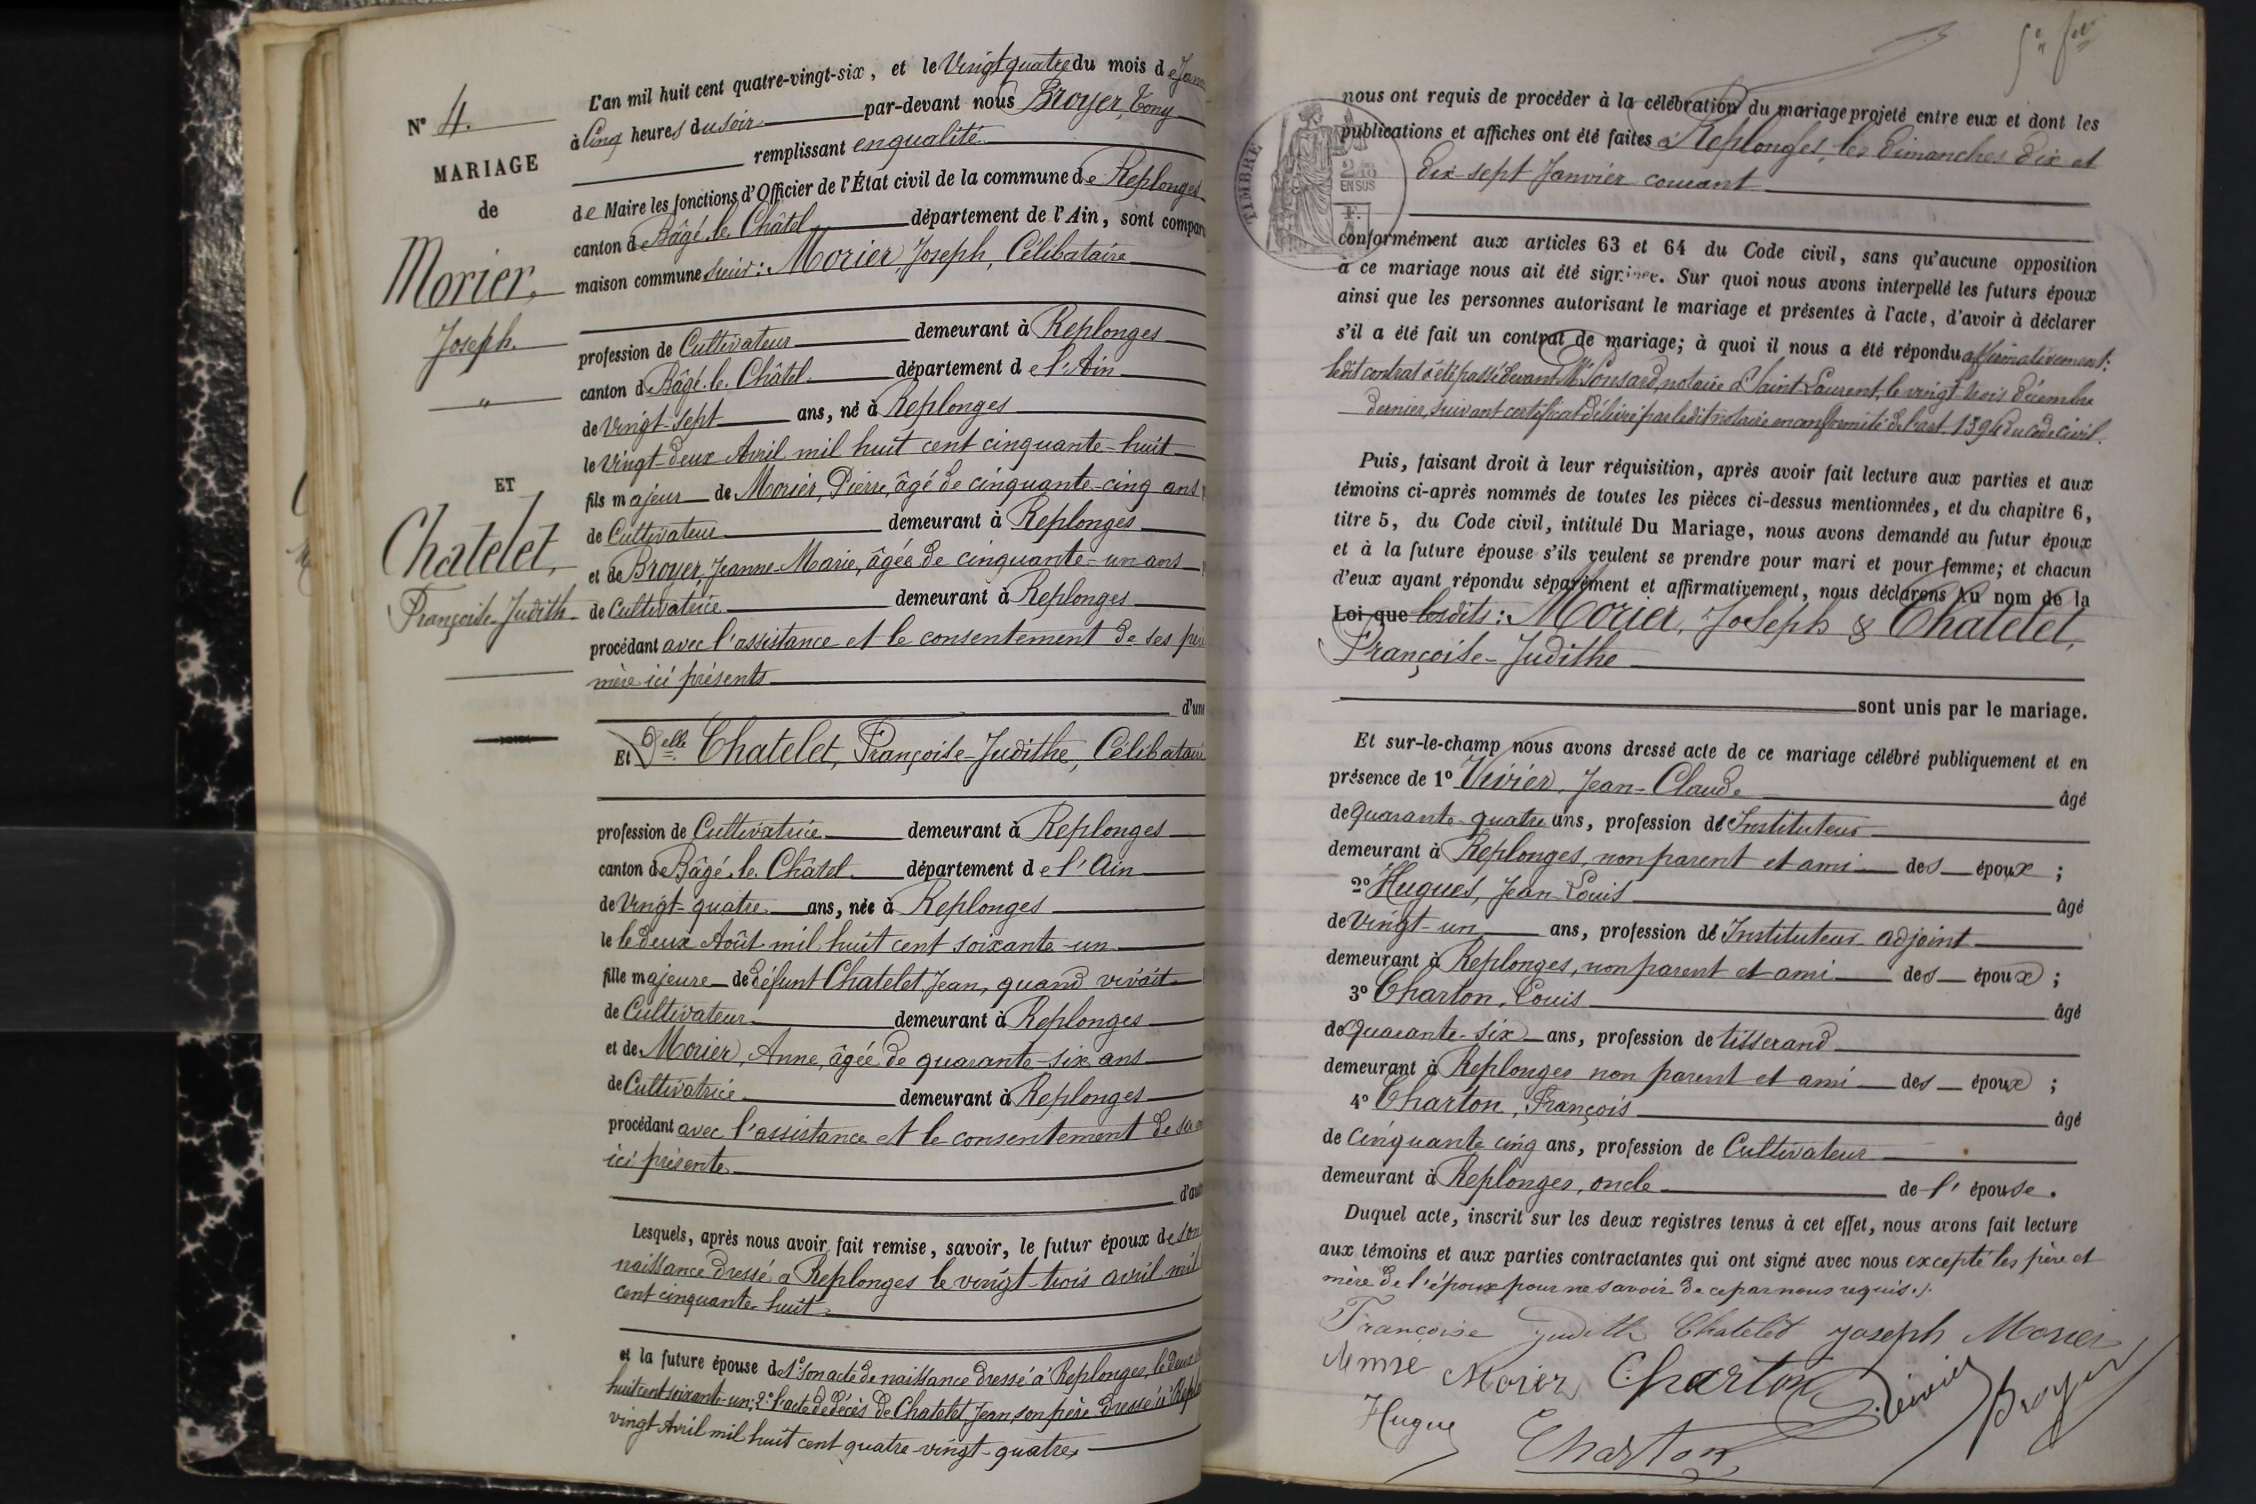 N° 4.
MARIAGE
de
Morier,
Joseph.
"
ET
Chatelet,
Françoise-Judith
L'an mil huit cent quatre-vingt-six, et le Vingt quatre du mois de Janv
à Cinq heures du soir par-devant nous Broyer, Tony
remplissant en qualité
de Maire les fonctions d'Officier de l'État civil de la commune de Replonges
canton de Bâgé-le-Châtel département de l'Ain, sont compar
maison commune sieur: Morier Joseph, Célibataire
profession de Cultivateur demeurant à Replonges
canton de Bâgé-le-Châtel département de l'Ain
de Vingt-sept ans, né à Replonges
le Vingt-deux Avril mil huit cent cinquante-huit
fils majeur de Morier, Pierre, âgé de cinquante-cinq ans
de Cultivateur demeurant à Replonges
et de Broyer, Jeanne-Marie, âgée de cinquante-un ans
de Cultivatrice demeurant à Replonges
procédant avec l'assistance et le consentement de ses père
mère ici présents
d'une
Et Delle Chatelet, Françoise-Judithe, Célibataire
profession de Cultivatrice demeurant à Replonges
canton de Bâgé-le-Châtel département de l'Ain
de Vingt-quatre ans, née à Replonges
le le deux Août mil huit cent soixante-un
fille majeure de défunt Chatelet Jean, quand vivait
de Cultivateur demeurant à Replonges
et de Morier, Anne, âgée de quarante-six ans
de Cultivatrice demeurant à Replonges
procédant avec l'assistance et le consentement de sa
ici présente
d'aut
Lesquels, après nous avoir fait remise, savoir, le futur époux de son
naissance dressé à Replonges le vingt-trois avril mil
cent cinquante-huit
et la future épouse de 1° son acte de naissance dressé à Replonges, le deux
huit cent soixante-un; 2° l'acte de décès de Chatelet, Jean, son père dressé à Replo
vingt Avril mil huit cent quatre-vingt-quatre
nous ont requis de procéder à la célébration du mariage projeté entre eux et dont les
publications et affiches ont été faites à Replonges, les dimanches dix et
dix-sept Janvier courant
TIMBRE
EN SUS
conformément aux articles 63 et 64 du Code civil, sans qu'aucune opposition
à ce mariage nous ait été signifiée. Sur quoi nous avons interpellé les futurs époux
ainsi que les personnes autorisant le mariage et présentes à l'acte, d'avoir à déclarer
s'il a été fait un contrat de mariage; à quoi il nous a été répondu affirmativement:
ledit contrat a été passé devant Me Ponsard, notaire à Saint Laurent, le vingt trois décembre
dernier, suivant certificat délivré par ledit notaire en conformité de l'art. 1394 du code civil.
Puis, faisant droit à leur réquisition, après avoir fait lecture aux parties et aux
témoins ci-après nommés de toutes les pièces ci-dessus mentionnées, et du chapitre 6,
titre 5, du Code civil, intitulé Du Mariage, nous avons demandé au futur époux
et à la future épouse s'ils veulent se prendre pour mari et pour femme; et chacun
d'eux ayant répondu séparément et affirmativement, nous déclarons Au nom de la
Loi que lesdits: Morier, Joseph & Chatelet,
Françoise-Judithe
sont unis par le mariage.
Et sur-le-champ nous avons dressé acte de ce mariage célébré publiquement et en
présence de 1° Vivier, Jean-Claude âgé
de quarante-quatre ans, profession d'Instituteur
demeurant à Replonges, non parent et ami des époux;
2° Hugues, Jean Louis âgé
de Vingt-un ans, profession d'Instituteur adjoint
demeurant à Replonges, non parent et ami des époux;
3° Charton, Louis âgé
de quarante-six ans, profession de tisserand
demeurant à Replonges non parent et ami des époux;
4° Charton, François âgé
de cinquante cinq ans, profession de Cultivateur
demeurant à Replonges, oncle de l'épouse.
Duquel acte, inscrit sur les deux registres tenus à cet effet, nous avons fait lecture
aux témoins et aux parties contractantes qui ont signé avec nous excepté les père et
mère de l'époux pour ne savoir de ce par nous requis./.
Françoise Judith Chatelet Joseph Morier
Anne Morier Charton Vivier Broyer
Hugues Charton